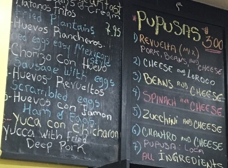 Platanos fritos
& Cream
Fried Plantains
Huevos Rancheros 7.95
Eggs Mexican Style
Chorizo Con Huevo
Sausage With Eggs
-Huevos Revueltos
Scrambled eggs
-Huevos con Jamon
Ham & eggs
-Yuca con Chicharon
Yucca with Fried
Deep Pork
PUPUSAS
3.00
1) REVUELTA (MIX)
PORK, BEANS and
2) CHEESE and LOROCO
3) BEANS and CHEESE
4) SPINACH and CHEESE
5) ZUCCHINI and CHEESE
6) CILANTRO and CHEESE
7) PUPUSA
ALL INGREDIENTS